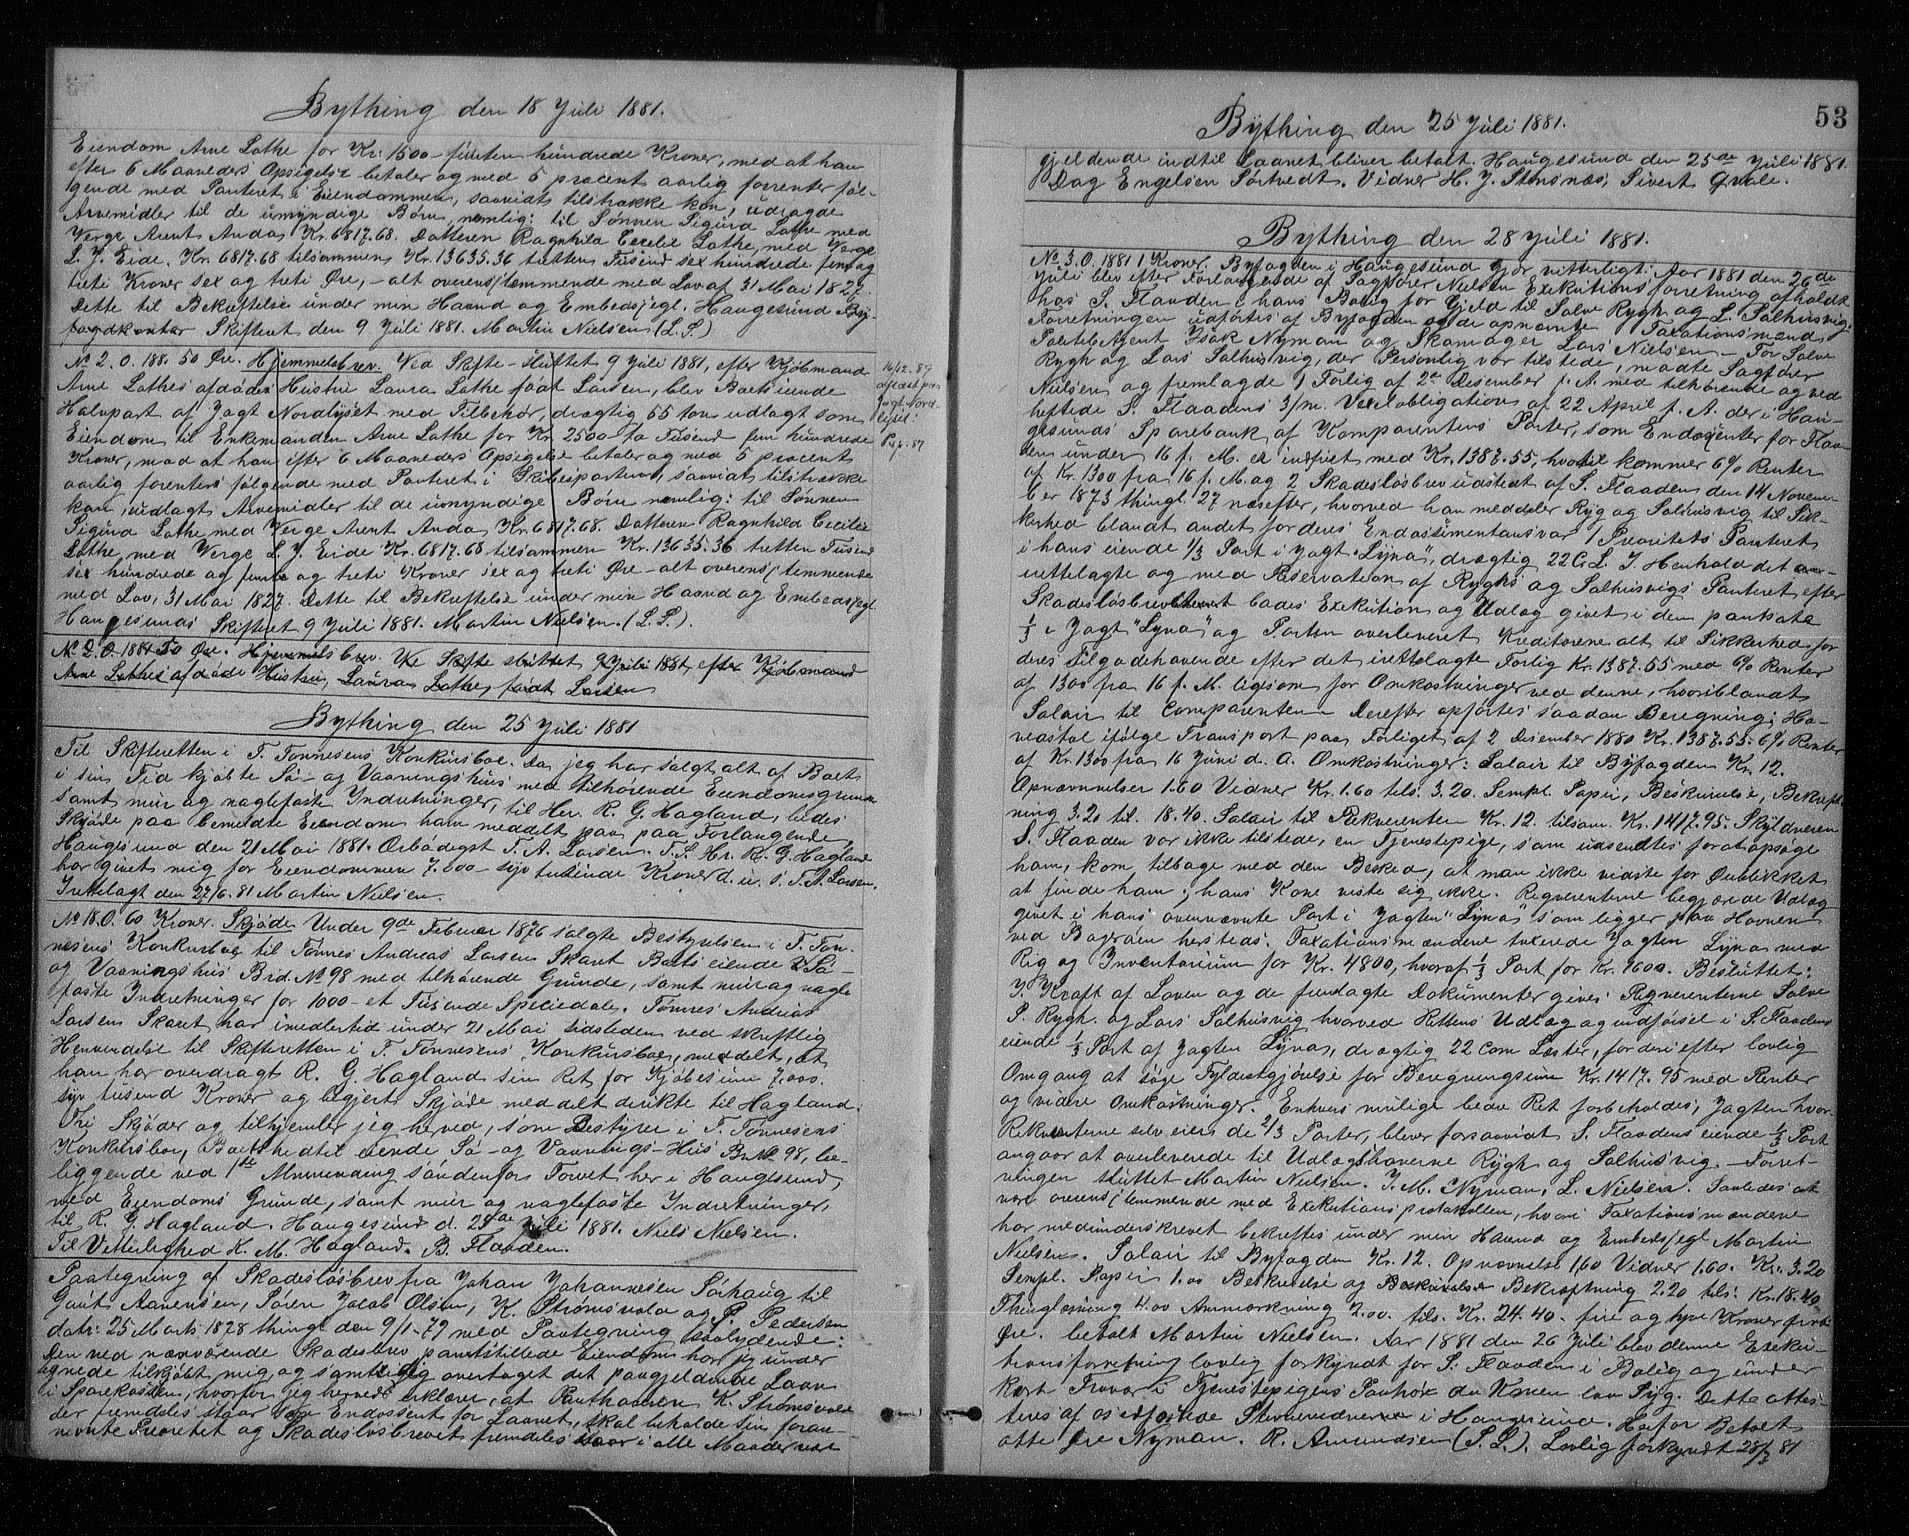 Bything den 18 Juli 1881.
Eiendom Arne Lothe for Kr. 1500 – femten hundrede Kroner, mod at han
efter 6 Maaneders Opsigelse betaler og med 5 procent aarlig forrenter føl-
gende med Panteret i Eiendommen, saavidt tilstrække kan, udlagde
Arvemidler til de umyndige Børn, nemlig: til Sønnen Sigurd Lothe med
Verge Arent Anda Kr. 6817.68. Datteren Ragnhild Cecilie Lothe, med Verge
L. J. Eide. Kr. 6817.68 tilsammen Kr. 13635.36 tretten Tusend sex hundrede fem og
treti Kroner sex og treti Øre, – alt overensstemmende med Lov af 31 Mai 1827.
Dette til Bekræftelse under min Haand og Embedssegl. Haugesund By-
fogdkontor Skifteret den 9 Juli 1881. Martin Nielsen (L.S.)
No 2. O. 188. 50 Øre. Hjemmelsbrev. Ved Skifte-sluttet 9 Juli 1881, efter Kjøbmand
Arne Lothes afdøde Hustru Laura Lothe født Larsen, blev Boets eiende
Halvpart af Jagt Nordlyset med Tilbehør, drægtig 65 tons udlagt som
Eiendom til Enkemanden Arne Lothe for Kr. 2500 – to Tusend fem hundrede
Kroner, mod at han efter 6 Maaneders Opsigelse betaler og med 5 procent
aarlig forenter følgende med Panteret i Skibesparten, saavidt tilstrække
kan, udlagt Arvemidler til de umyndige Børn nemlig: til Sønnen
Sigurd Lothe med Verge Arent Anda Kr. 6817.68. Datteren Ragnhild Cecilie
Lothe, med Verge L. J. Eide Kr. 6817.68 tilsammen Kr. 13635.36 tretten Tusend
sex hundrede og femte og treti Kroner sex og treti Øre – alt overensstemmende
med Lov, 31 Mai 1827. Dette til Bekræftelse under min Haand og Embedssegl.
Haugesunds Skifteret 9 Juli 1881. Martin Nielsen. (L.S.).
16/12-87
aflæst paa
Jagt Nord-
lyset.
No 2. O. 1881 50 Øre. Hjemmelsbrev. Ve Skifte sluttet 9 Juli 1881, efter Kjøbmand
Arne Lothes afdøde Hustru, Laura Lothe, født Larsen
Bything den 25 Juli 1881
Til Skifteretten i T. Tønnesens Konkursboe. Da jeg har solgt alt af Boet
i sin Tid kjøbte Sø- og Vaaningshus med tilhørende Eiendomsgrund
samt mur og naglefaste Indretninger, til Her. R. G. Hagland, bedes
Skjøde paa bemeldte Eiendom ham meddelt paa Forlangende
Haugesund den 21 Mai 1881. Ærbødigst T. A. Larsen. T.S. Hr. R. G. Hagland
har givet mig for Eiendommen 7.000 – syv tusinde Kroner d. u. s. T. A. Larsen.
Irettelagt den 27/6. 81 Martin Nielsen.
No 18. O. 60 Kroner. Skjøde Under 9de Februar 1876 solgte Bestyrelsen i T. Tøn-
nesens Konkursboe til Tønnes Andreas Larsen Skaret Boets eiende Sø-
og Vaaningshus Brd. No 98 med tilhørende Grunde, samt mur og nagle-
faste Indretninger for 1000 – et Tusende Speciedaler. Tønnes Andreas
Larsen Skaret har imedlertid under 21 Mai sidstleden ved skriftlig
Henvendelse til Skifteretten i T. Tønnesens Konkursboe, meddelt, at
han har overdragt R. G. Hagland sin Ret for Kjøbesum 7.000.
syv tusend Kroner og begjert Skjøde meddelt dirikte til Hagland.
Thi Skjøder og tilhjemler jeg herved, som Bestyrer i T. Tønnesens
Konkursboe, Boets hedtil eiende Sø- og Vaanings-Hus Br No 98, be-
liggende ved 1ste Almending søndenfor Torvet her i Haugesund,
med Eiendoms Grunde, samt mur og naglefaste Indretninger,
til R. G. Hagland. Haugesund d. 25de Juli 1881. Niels Nielsen.
Til Vitterlighed K. M. Hagland. B. Flaaden.
Paategning af Skadesløsbrev fra Johan Johannesen Sørhaug til
Gaut Aanensen, Søren Jacob Olsen, K. Strømsvold og P. Pedersen
dat: 25 Marts 1878 thingl. den 9/1-79 med Paategning saalydende:
Den ved nærværende Skadesbrev pantstillede Eiendom har jeg under
tegnede tilkjøbt mig, og samtidig overtaget det paagjeldende Laan
i Sparekassen, hvorfor jeg herved erklærer, at Panthaveren K. Strømsvold
der fremdeles staar som Endossent for Laanet, skal beholde sin foran-
nevnte Prioretet og Skadesløsbrevet fremdeles staar i alle Maader være
53
Bything den 25 Juli 1881.
gjeldende indtil Laanet bliver betalt. Haugesund den 25de Juli 1881.
Dag Engelsen Sørtvedt. Vidner H. J. Stensnæs, Sivert Qvale.
Bything den 28 Juli 1881.
No 3. O. 1881 1 Kroner. Byfogden i Haugesund Gjør vitterligt: Aar 1881 den 26de
Juli blev efter Forlangende af Sagfører Nielsen Exekutions forretning afholdt
hos S. Flaaden i hans Bolig for Gjeld til Salve Rygh og L. Salhusvig.
Forretningen udførtes af Byfogden og de opnævnte Taxationsmænd,
PolitiAgent Isak Nyman og Skomager Lars Nielsen – For Salve
Rygh og Lars Salhusvig, der Personlig var tilstede, mødte Sagfører
Nielsen og fremlagde 1 Forlig af 2de Desember f. A. med tilhørende og ved
heftede S. Flaadens 3/m. Vexelobligation af 22 April f. A. der i Hau-
gesunds Sparebank af Komparentens Parter, som Endosenter for Flaa-
den under 16 f. M. er indfriet med Kr. 1387.55, hvortil kommer 6% Renter
af Kr. 1300 fra 16 f. M. og 2 Skadesløsbrev udstedt af S. Flaaden den 14 Novem-
ber 1873 thingl. 27 næsefter, hvorved han meddeler Ryg og Salhusvig til Sik-
kerhed blandt andet for deres Endossementansvar 1 Prioritets Panteret
i hans eiende 1/3 Part i Jagt "Lyna", drægtig 22 C.L. I Henhold det
irettelagte og med Reservation af Ryghs og Salhusvigs Panteret efter
Skadesløsbrevet bades Exekution og Udlag givet i den pantsate
1/3 i Jagt "Lyna" og Parten overleveret Kreditorene alt til Sikkerhed for
deres Tilgodehavende efter det irettelagte Forlig Kr. 1387.55 med 6% Renter
af 1300 fra 16 f. M. ligesom for Omkostninger ved denne, hvoriblandt
Salair til Comparenten. Derefter opførtes saadan Beregning: Ho-
vedstol ifølge Transport paa Forliget af 2 Desember 1880 Kr. 1387.55. 6% Renter
af Kr. 1300 fra 16 Juni d. A. Omkostninger: Salair til Byfogden Kr. 12.
Opnævnelser 1.60 Vidner Kr. 1.60 tils. 3.20. Stempl. Papir, Beskrivelse, Bekræft-
ning 3.20 til. 18.40. Salair til Rekvirenten Kr. 12. tilsam. Kr. 1417.95. Skyldneren
S. Flaaden var ikke tilstede, en Tjenestepige, som udsendtes for at opsøge
ham, kom tilbage med den Besked, at man ikke vidste for Øieblikket
at finde ham; hans Kone viste sig ikke. Reqverenterne begjærede Udlæg
givet i hans overnævnte Part i Jagten "Lyna" som ligger paa Havnen
ved Bagerøen hersteds. Taxationsmændene taxerede Jagten Lynas med
Rig og Inventarium for Kr. 4800, hvoraf 1/3 Part for Kr. 1600. Besluttet:
I Kraft af Loven og de fremlagte Dokumenter gives Reqverenterne Salve
P. Rygh. og Lars Salhusvig hvorved Rettens Udlæg og indførsel i S. Flaadens
eiende 1/3 Part af Jagten Lynas, drægtig 22 Com Lester, for deri efter lovlig
Omgang at søge Fyldestgjørelse for Beregningssum Kr. 1417.95 med Renter
og videre Omkostninger. Enhvers mulige bedre Ret forbeholdes; Jagten hvor-
Rekvirenterne selv eiers de 2/3 Parter, blever forsaavidt S. Flaadens eiende 1/3 Part
angaar at overleverede til Udlægshaverne Rygh og Salhusvig. – Forret-
ningen sluttet Martin Nielsen. I. M. Nyman, L. Nielsen. Saaledes at
være overensstemmende med Exekutionsprotokollen, hvori Taxationsmændene
har medunderskrevet bekræftes under min Haand og Embedssegl Martin
Nielsen. Salair til Byfogden Kr. 12. Opnævnelse 1.60 Vidner 1.60. Kr. 3.20
Stempl. Papir 1.00 Beskrivelse og Beskrivelse Bekræftning 2.20 tils: Kr. 18.40
Thinglæsning 4.00 Anmærkning 2.00. tils. Kr. 24.40. fire og tyve Kroner førti
Øre. betalt Martin Nielsen. Aar 1881 den 26 Juli blev denne Exeku-
tionsforretning lovlig forkyndt for S. Flaaden i Bolig og under
kort Fravær i Tjenestepigens Paahør da Konen laa Syg. Dette attes-
teres af os edfæstede Stevnevidnerne i Haugesund. Herfor Betalt
otte Øre Nyman. R. Amundsen (L.S.). Lovlig forkyndt 28/7 81